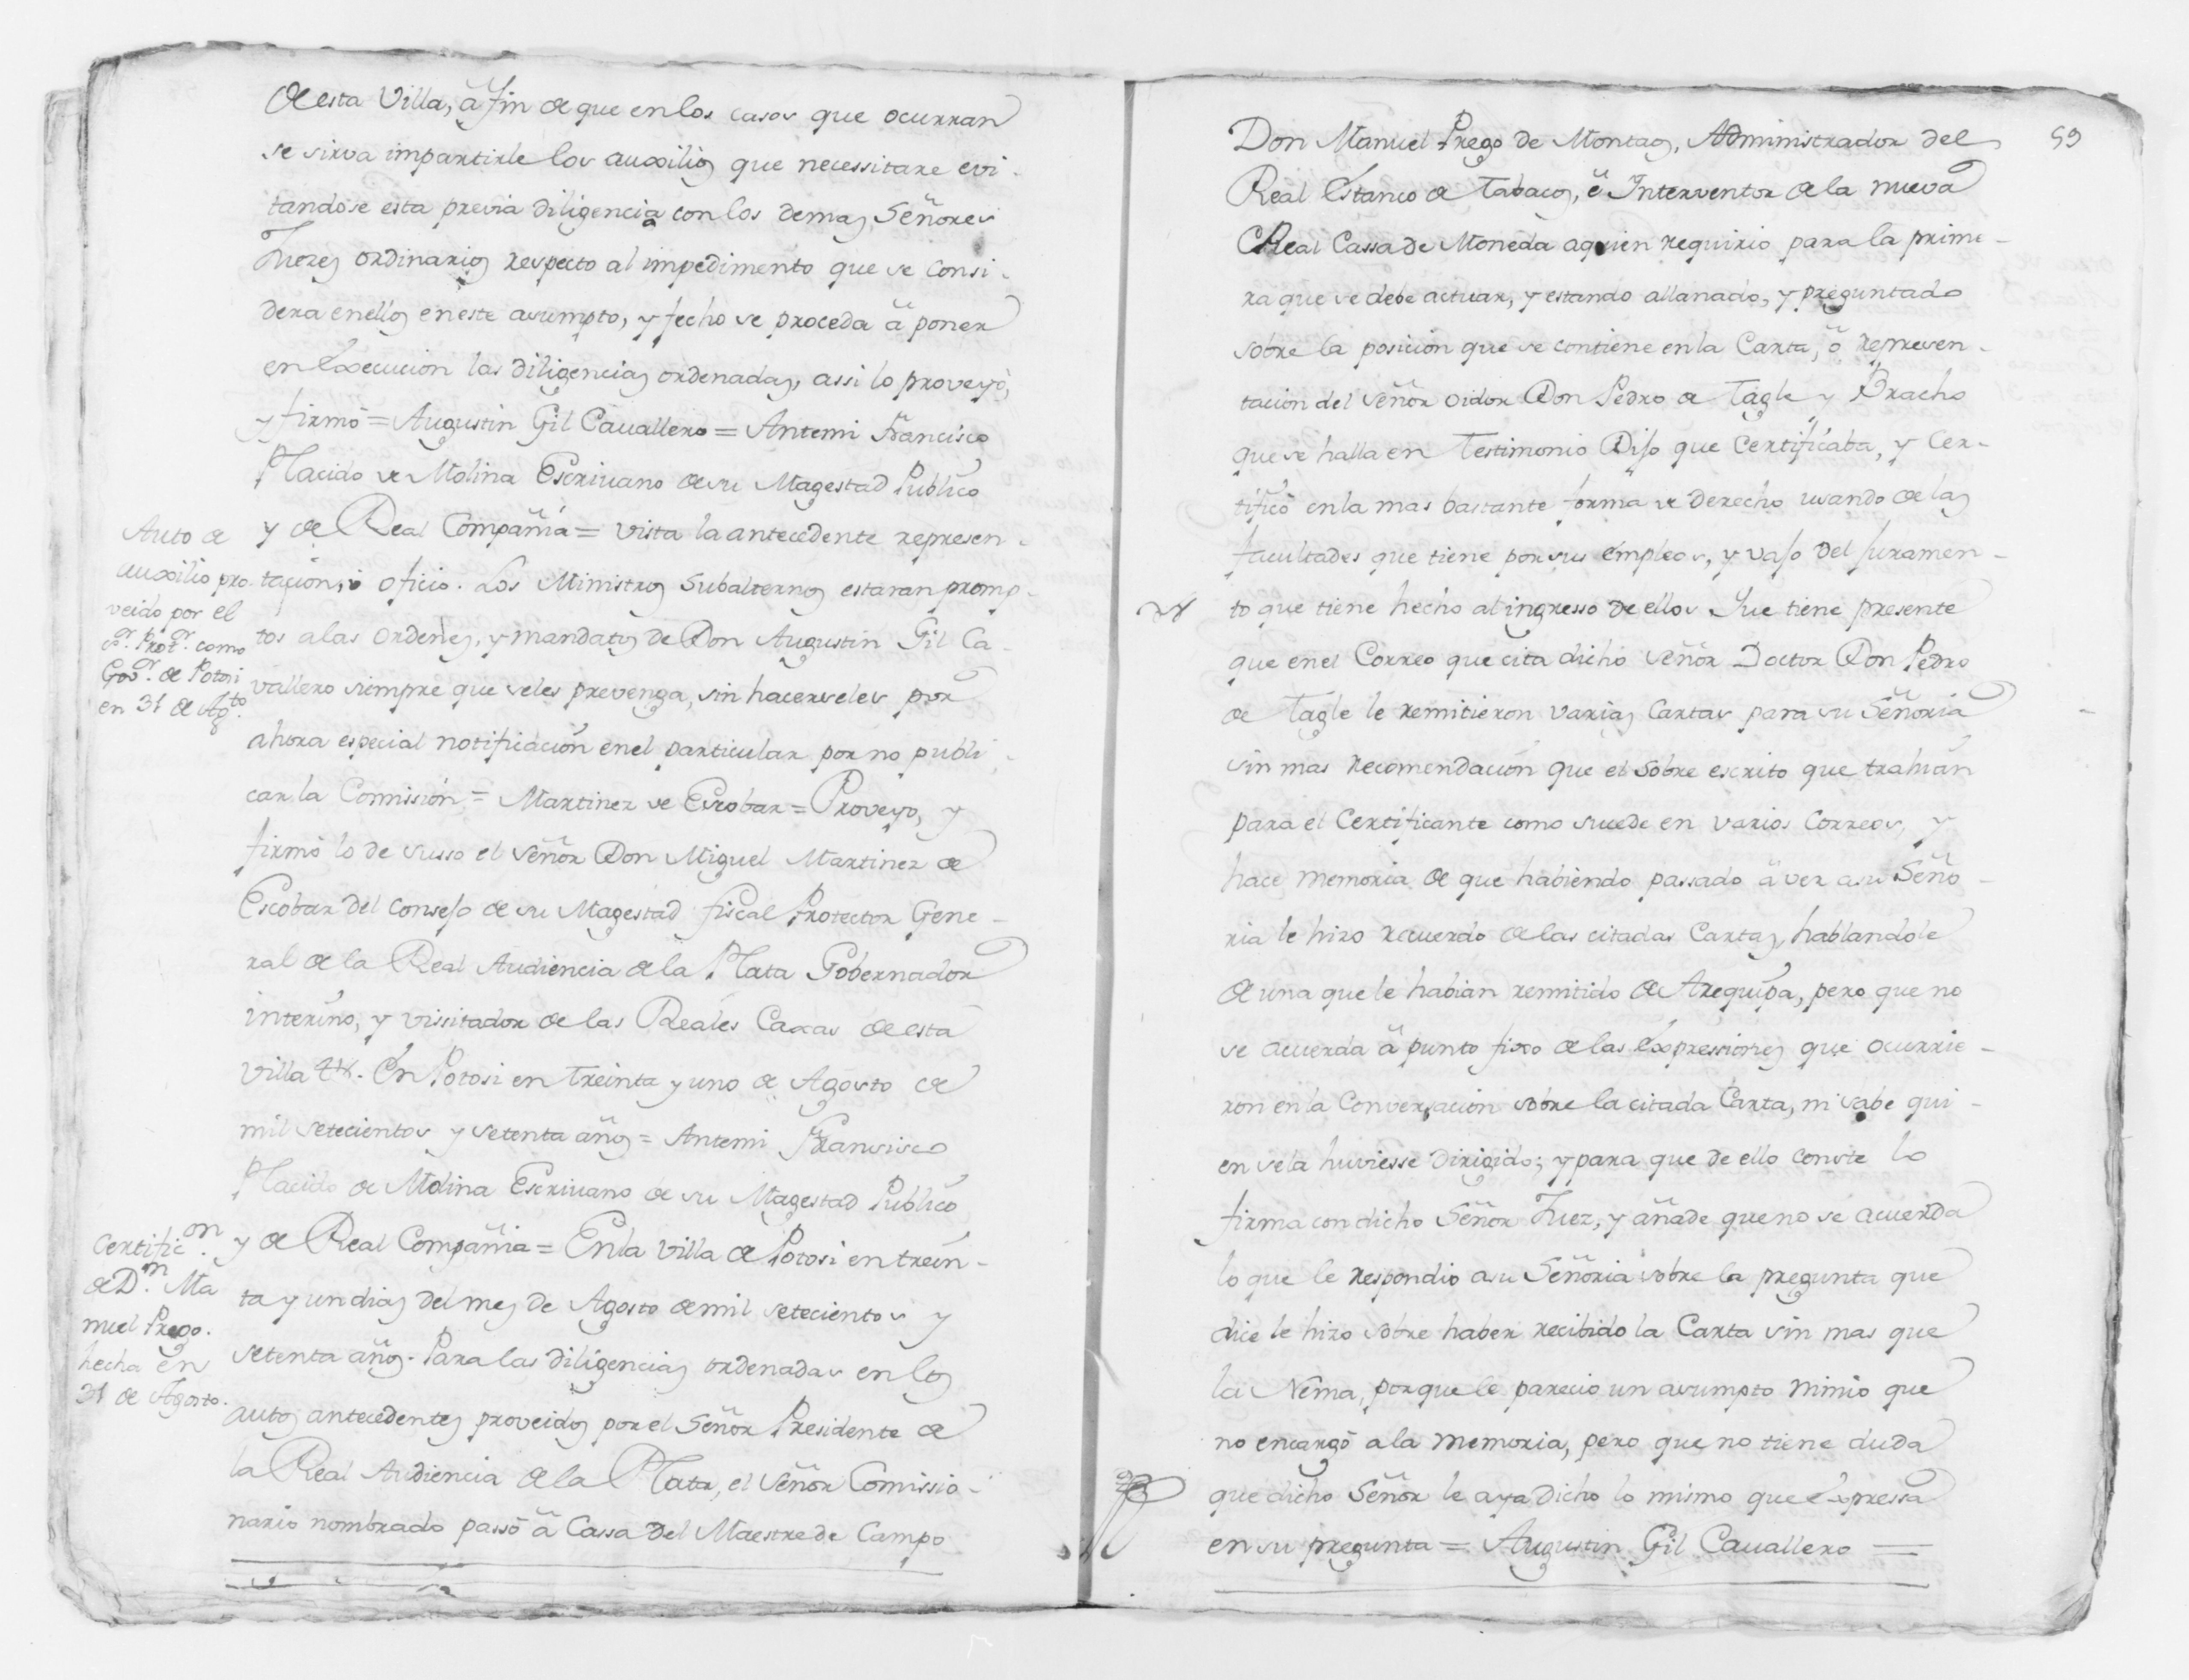 de esta Villa, â fin de que en los casos que ocurran
se sirva impartirle los auxilios que necessitare evi-
tandose esta previa diligencia con los demas Señores
Juezes ordinarios respecto al impedimento que se consi-
dera en ellos en este asumpto, y fecho se proceda â poner
en Execucion las diligencias ordenadas, assi lo proveyó,
y firmó = Augustin Gil Cavallero = Antemi Francisco
Placido de Molina Escrivano de su Magestad Publico
y de Real Compañia = Vista la antecedente represen-
tacion, ò oficio. Los Ministros Subalternos estaran promp-
tos alas ordenes, y mandatos de Don Augustin Gil Ca-
vallero siempre que seles prevenga, sin hacerseles por
ahora especial notificacion enel particular por no publi-
car la Comission = Martinez de Escobar = Proveyo, y
firmó lo de susso el Señor Don Miguel Martinez de
Escobar del Consejo de su Magestad fiscal Protector Gene-
ral de la Real Audiencia de la Plata Gobernador
interino, y vissitador de las Reales Caxas de esta
Villa &a. En Potosi en treinta y uno de Agosto de
mil setecientos y setenta años = Antemi Francisco
Placido de Molina Escrivano de su Magestad Publico
y de Real Compañia = En la Villa de Potosi en trein-
ta y un dias del mes de Agosto de mil setecientos y
setenta años. Para las diligencias ordenadas en los
autos antecedentes proveidos por el Señor Presidente de
la Real Audiencia de la Plata, el Señor Comissio-
nario nombrado passó â Cassa del Maestre de Campo
Auto de
auxilio pro-
veido por el
Sr. Protr. como
Govr. de Potosi
en 31 de Agto.
Certificon.
de Dn. Ma
nuel Prego.
hecha en
31 de Agosto.
59
Don Manuel Prego de Montaos, Administrador del
Real Estanco de Tabacos, ê Interventor de la nueva
Real Cassa de Moneda aquien requirio para la prime-
ra que se debe actuar, y estando allanado, y preguntado
sobre la posicion que se contiene en la Carta, ô represen-
tacion del Señor Oidor Don Pedro de Tagle y Bracho
que se halla en Testimonio Dijo que Certificaba, y Cer-
tificó en la mas bastante forma de derecho usando de las
facultades que tiene por sus Empleos, y vajo del Juramen-
to que tiene hecho al ingresso de ellos Que tiene presente
que en el Correo que cita dicho Señor Doctor Don Pedro
de Tagle le remitieron varias Cartas para su Señoria
sin mas recomendacion que el sobre escrito que trahian
para el Certificante como sucede en varios Correos, y
hace memoria de que habiendo passado â ver asu Seño-
ria le hizo recuerdo de las citadas Cartas, hablandole
de una que le habian remitido de Arequipa, pero que no
se acuerda â punto fixo de las Expressiones que ocurrie-
ron en la Conversacion sobre la citada Carta, ni sabe qui-
en sela huviesse dirigido; y para que de ello conste lo
firma con dicho Señor Juez, y añade que no se acuerda
lo que le respondio asu Señoria sobre la pregunta que
dice le hizo sobre haber recibido la Carta sin mas que
la Nema, porque le parecio un asumpto nimio que
no encargó a la memoria, pero que no tiene duda
que dicho Señor le aya dicho lo mismo que Expressa
en su pregunta = Augustin Gil Cavallero =